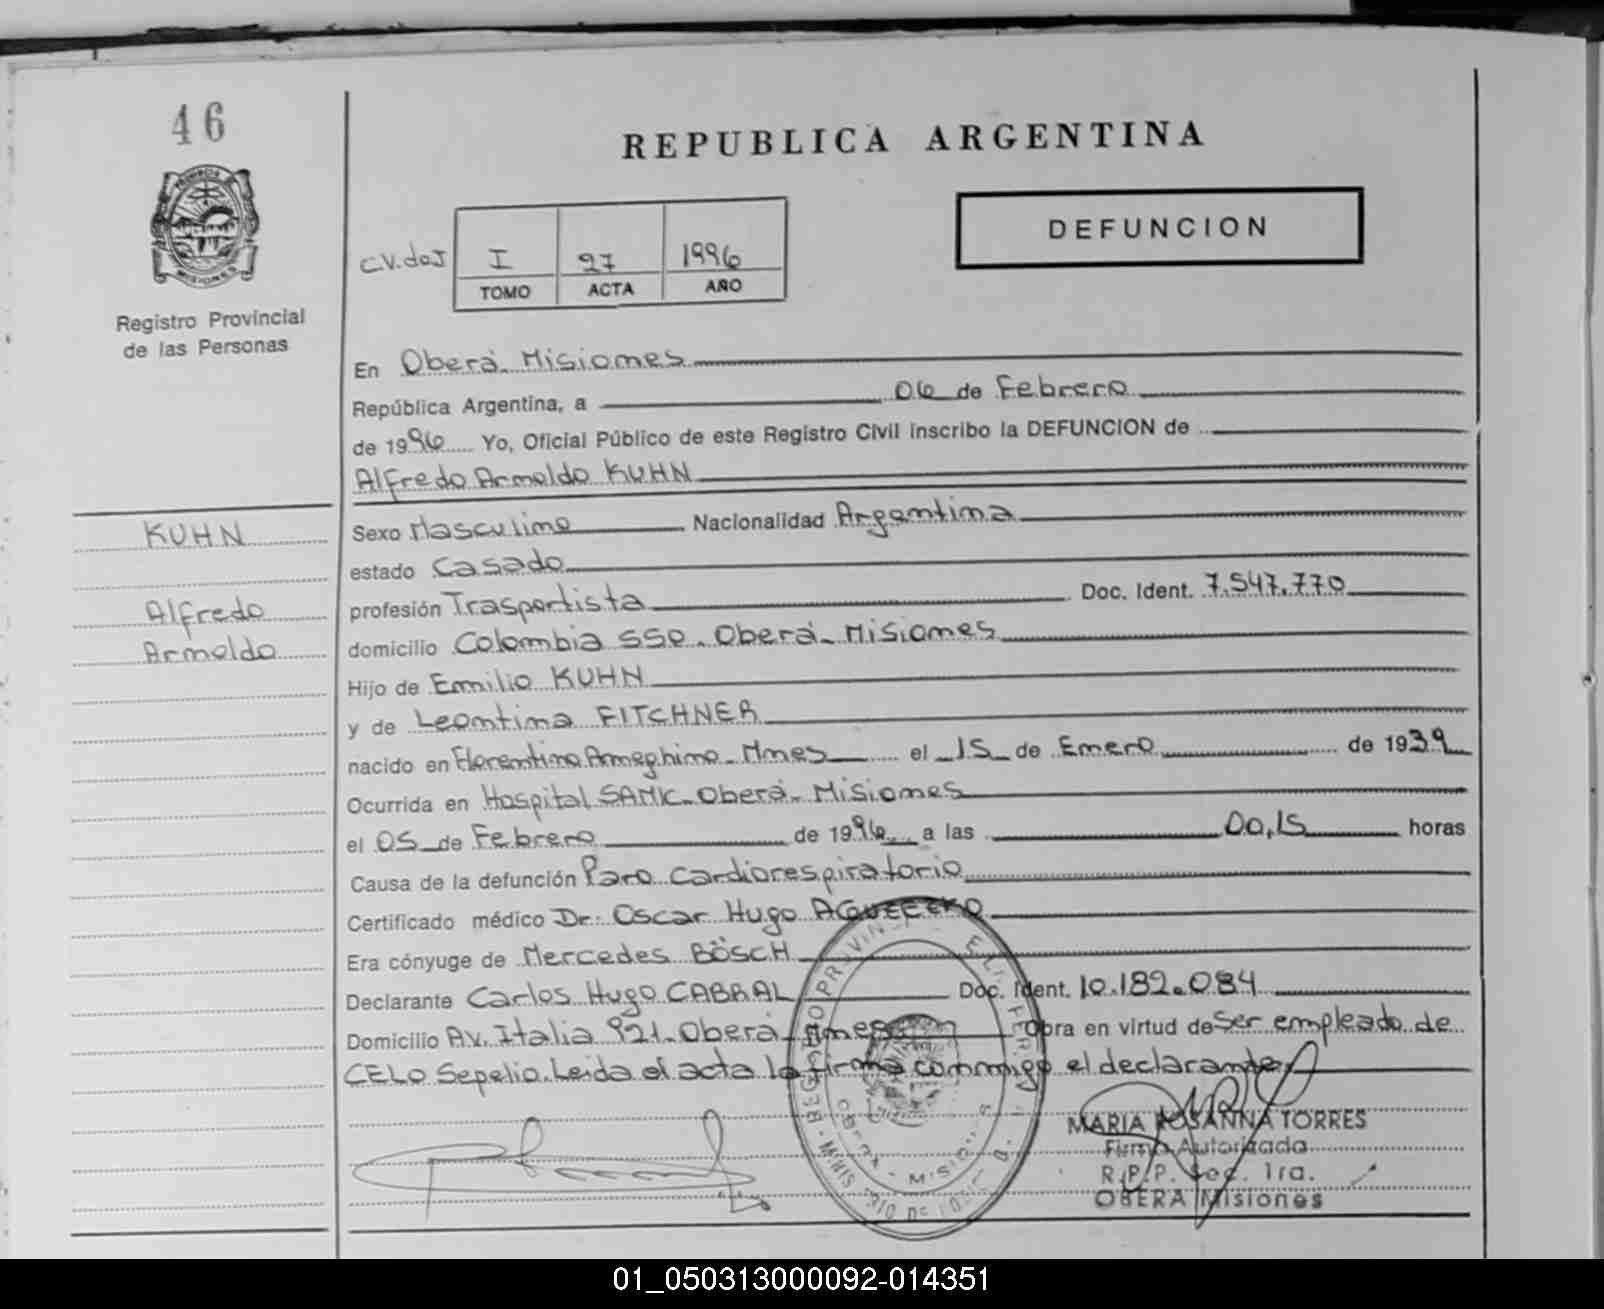 46
REPUBLICA ARGENTINA
DEFUNCION
I 97 1996
TOMO ACTA AÑO
Registro Provincial
de las Personas
En Oberá. Misiones
República Argentina, a 06 de Febrero
de 1996 Yo, Oficial Público de este Registro Civil inscribo la DEFUNCION de
Alfredo Arnoldo KUHN
KUHN
Alfredo
Arnoldo
Sexo Masculino Nacionalidad Argentina
estado Casado
profesión Trasportista Doc. Ident. 7.547.770
domicilio Colombia 550. Oberá. Misiones
Hijo de Emilio KUHN
y de Leontina FITCHNER
nacido en Florentino Ameghino. Mnes el 15 de Enero de 1939
Ocurrida en Hospital SAMIC. Oberá. Misiones
el 05 de Febrero de 1996 a las 00,15 horas
Causa de la defunción Paro cardiorespiratorio
Certificado médico Dr. Oscar Hugo
Era cónyuge de Mercedes BÖSCH
Declarante Carlos Hugo CABRAL Doc. Ident. 10.182.084
Domicilio Av. Italia 921. Oberá. Mnes Obra en virtud de ser empleado de
CELO Sepelio. Leida el acta la firma conmigo el declarante
MARIA ROSANNA TORRES
Firma Autorizada
R.P.P. Sec. 1ra.
OBERA Misiones
01_050313000092-014351